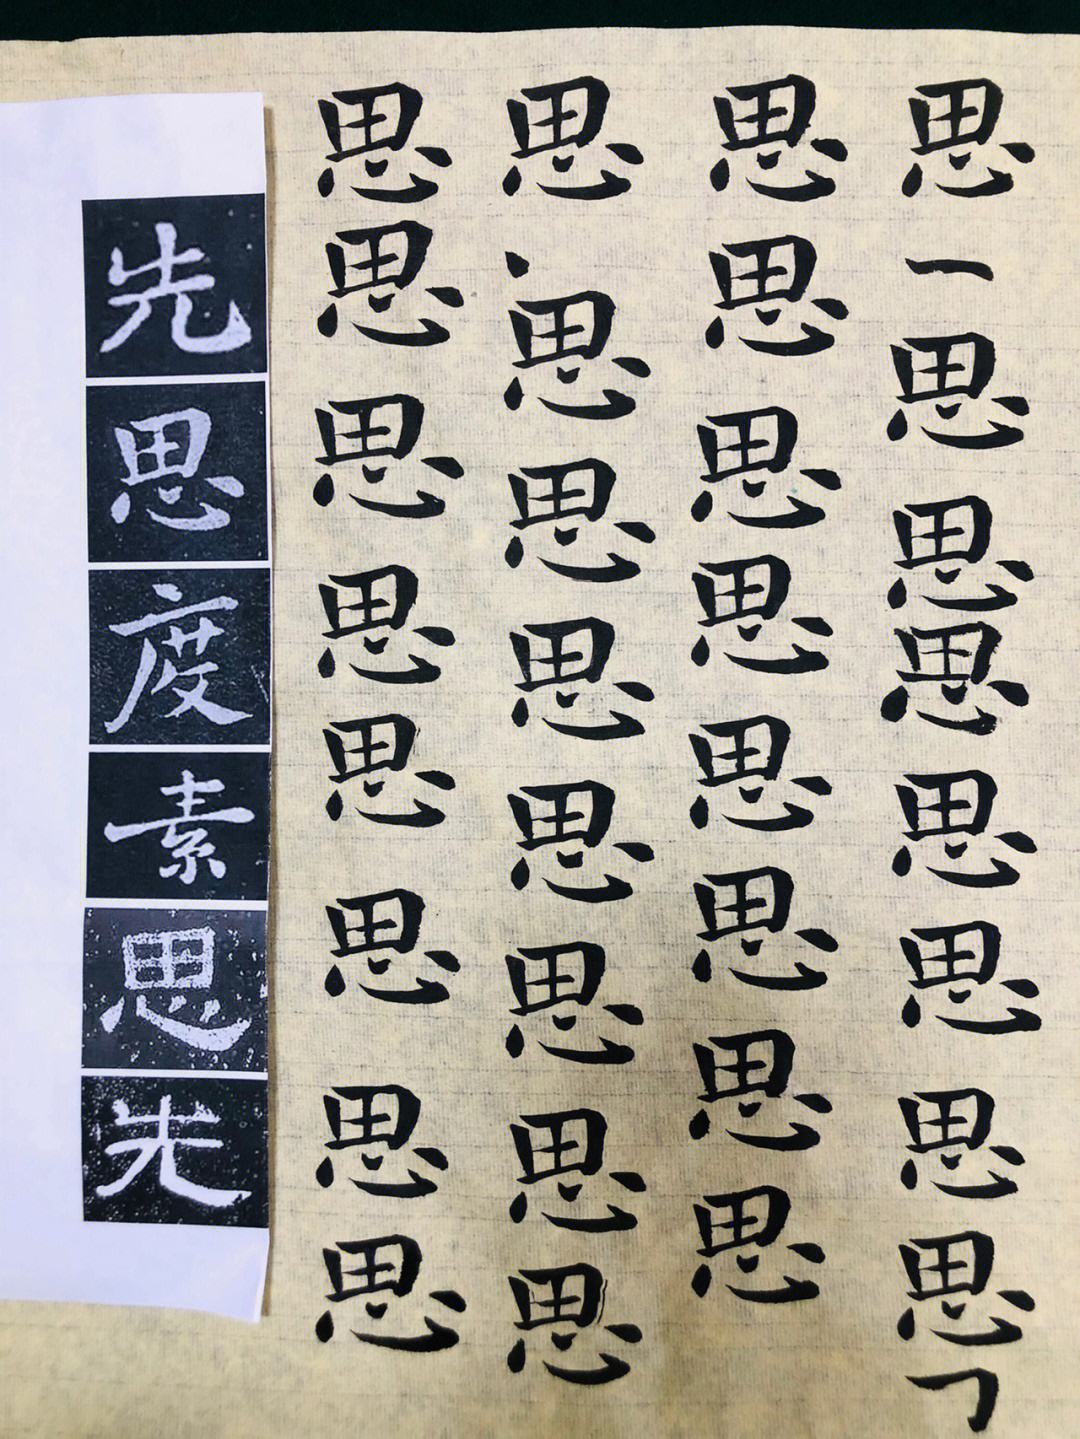 思一思思思思思思思
思思思思思思思思
思思思思思思思思
思思思思思思思思
先思度素思先